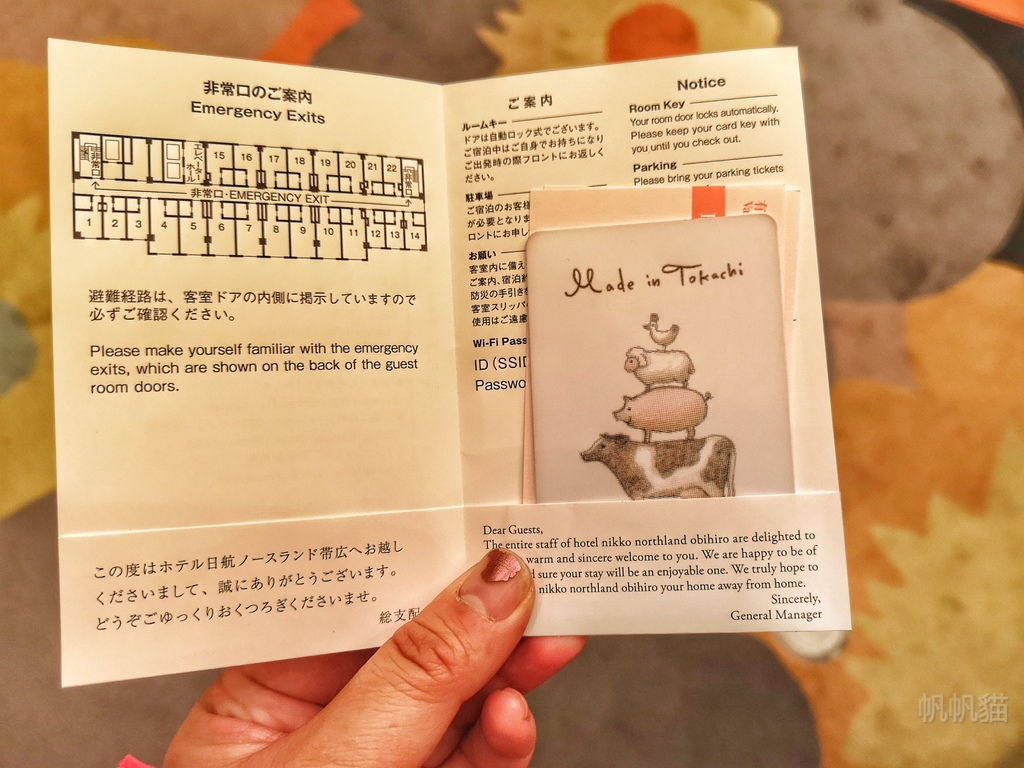 非常口のご案内
Emergency Exits
非常口
エレベーターホール
15 16 17 18 19 20 21 22
非常口
非常口・EMERGENCY EXIT
1 2 3 4 5 6 7 8 9 10 11 12 13 14
避難経路は、客室ドアの内側に掲示していますので
必ずご確認ください。
Please make yourself familiar with the emergency
exits, which are shown on the back of the guest
room doors.
この度はホテル日航ノースランド帯広へお越し
くださいまして、誠にありがとうございます。
どうぞごゆっくりおくつろぎくださいませ。
総支配
ご案内
ルームキー
ドアは自動ロック式でございます。
ご宿泊中はご自身でお持ちになり
ご出発時の際フロントにお返しく
ださい。
駐車場
ご宿泊のお客様
が必要となりま
ロントにお申し
お願い
客室内に備え
ご案内、宿泊約
防災の手引き
客室スリッパ
使用はご遠慮
Wi-Fi Pass
ID (SSID
Passwo
Notice
Room Key
Your room door locks automatically.
Please keep your card key with
you until you check out.
Parking
Please bring your parking tickets
Made in Tokachi
Dear Guests,
The entire staff of hotel nikko northland obihiro are delighted to
warm and sincere welcome to you. We are happy to be of
sure your stay will be an enjoyable one. We truly hope to
nikko northland obihiro your home away from home.
Sincerely,
General Manager
帆帆貓